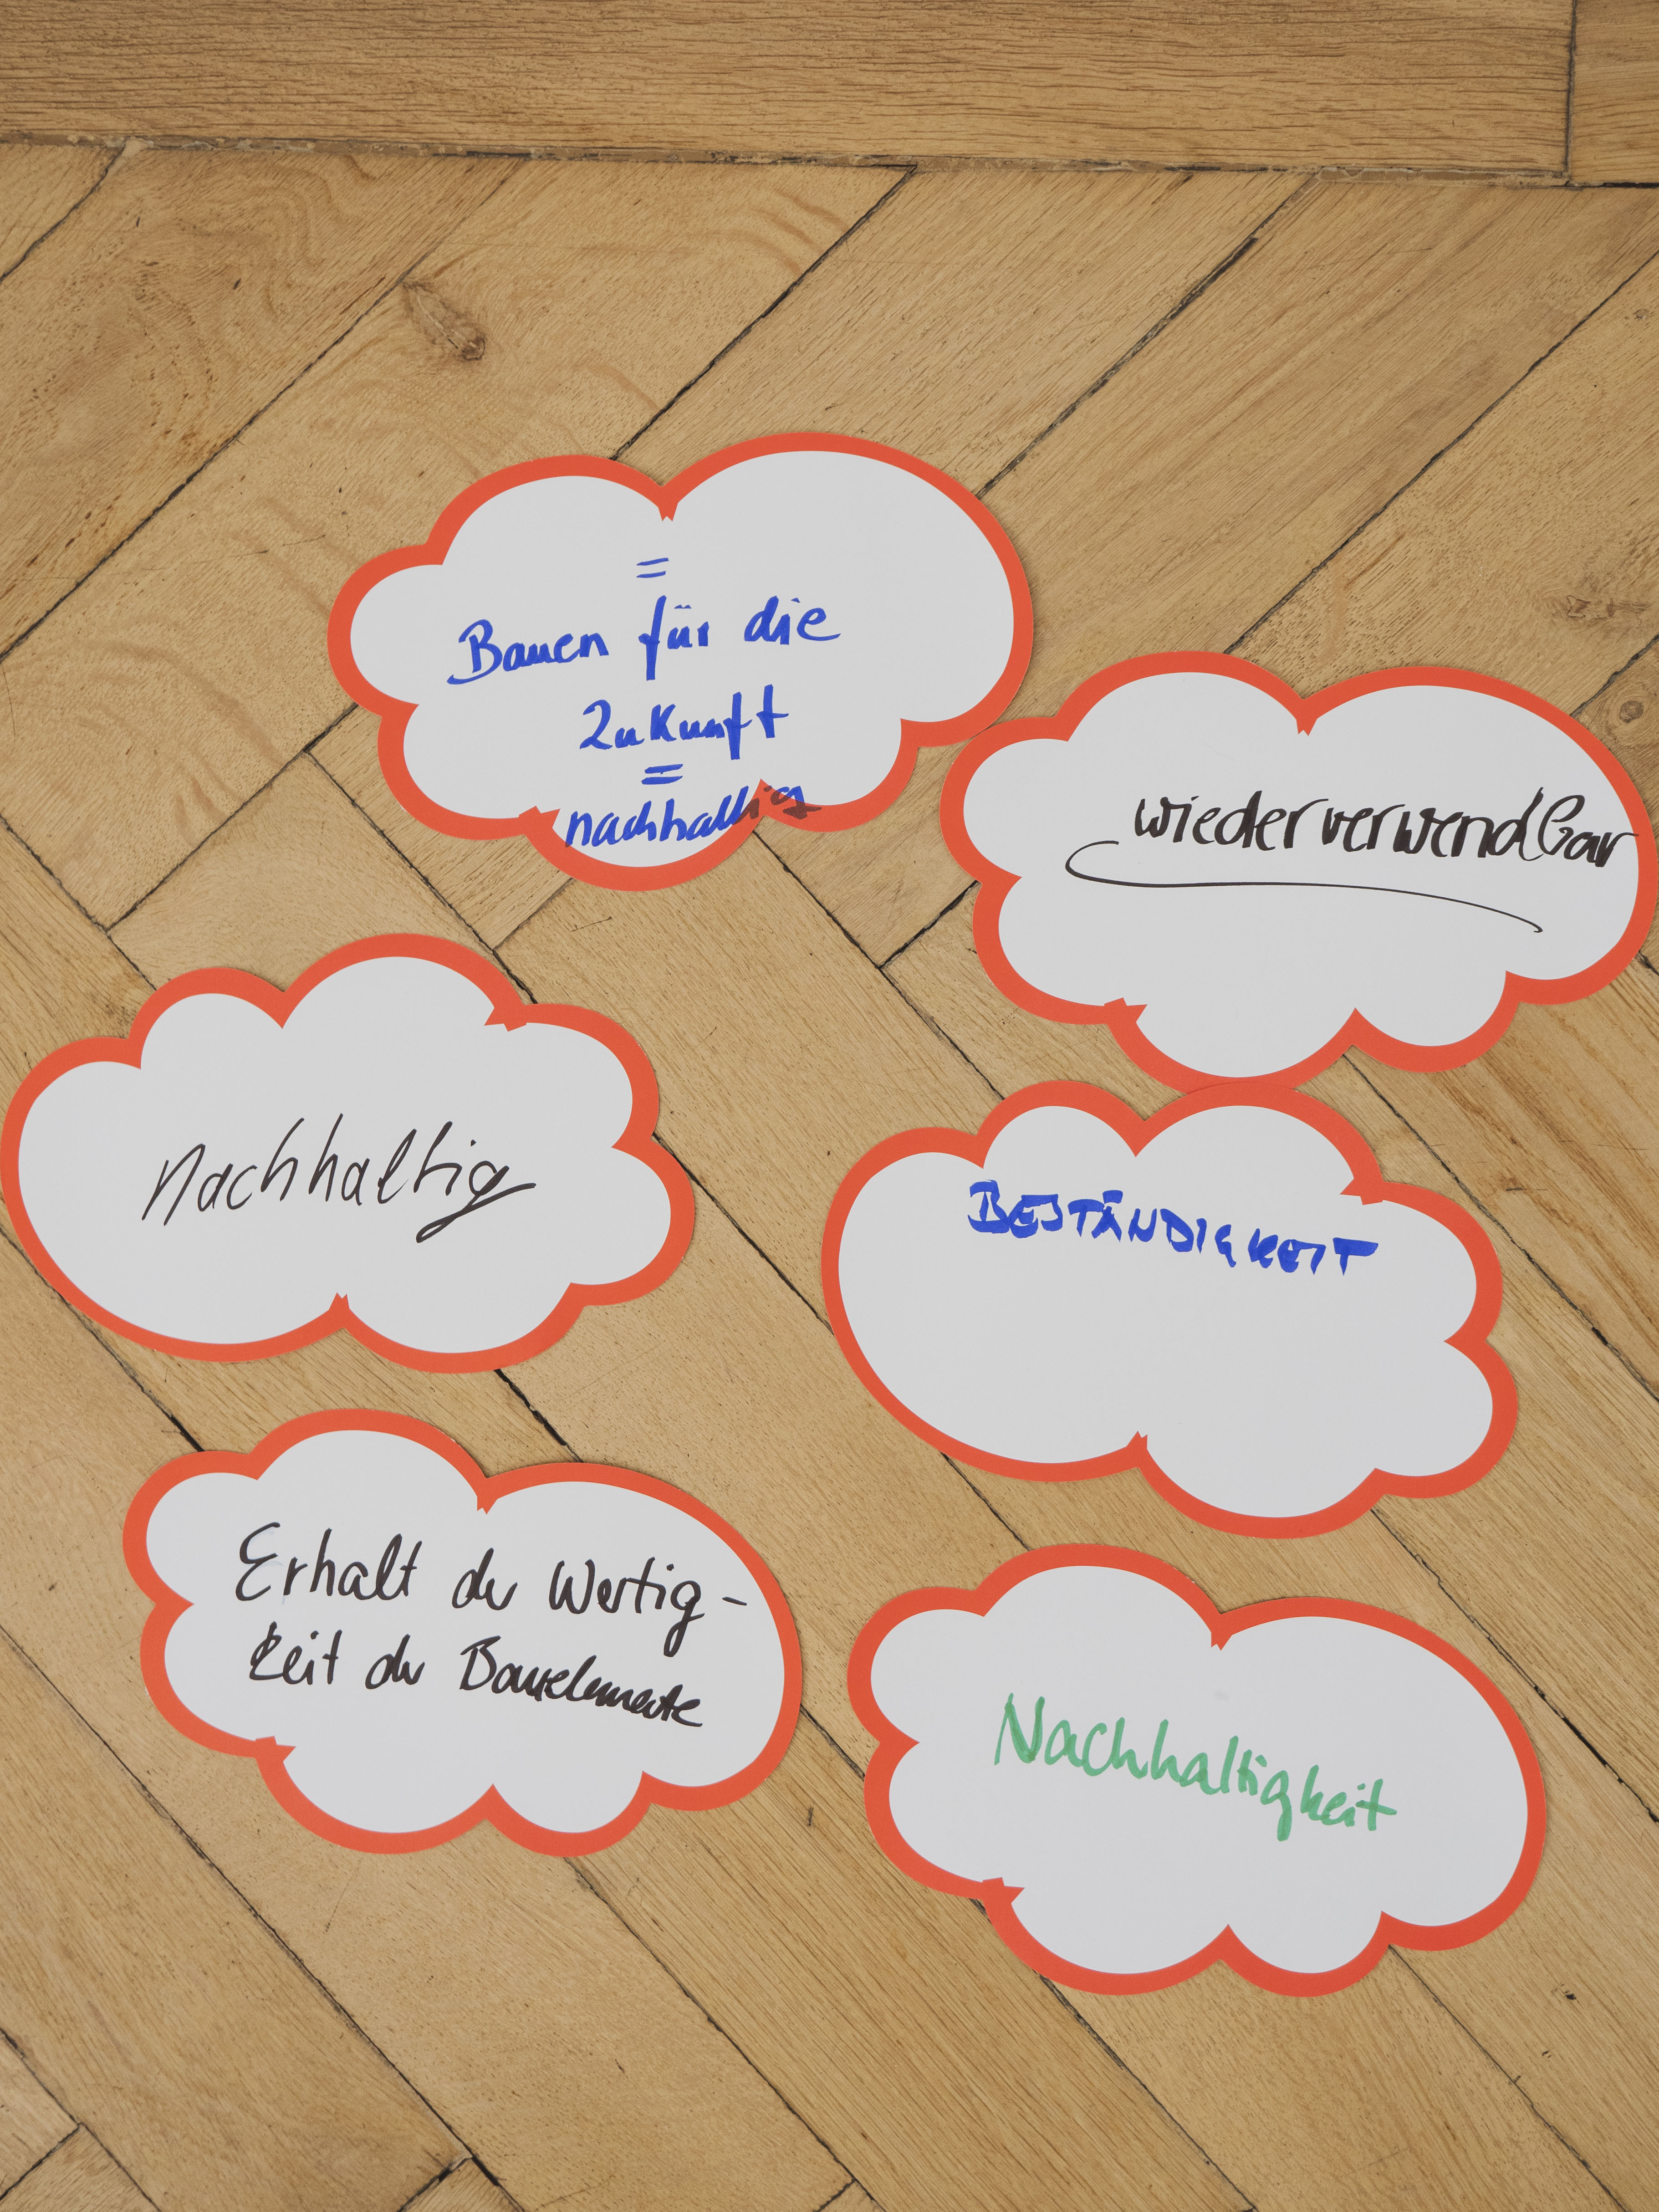 =
Bauen für die
Zukunft
=
nachhaltig
wiederverwendbar
Nachhaltig
BESTÄNDIGKEIT
Erhalt der Wertig-
keit der Bauelemente
Nachhaltigkeit